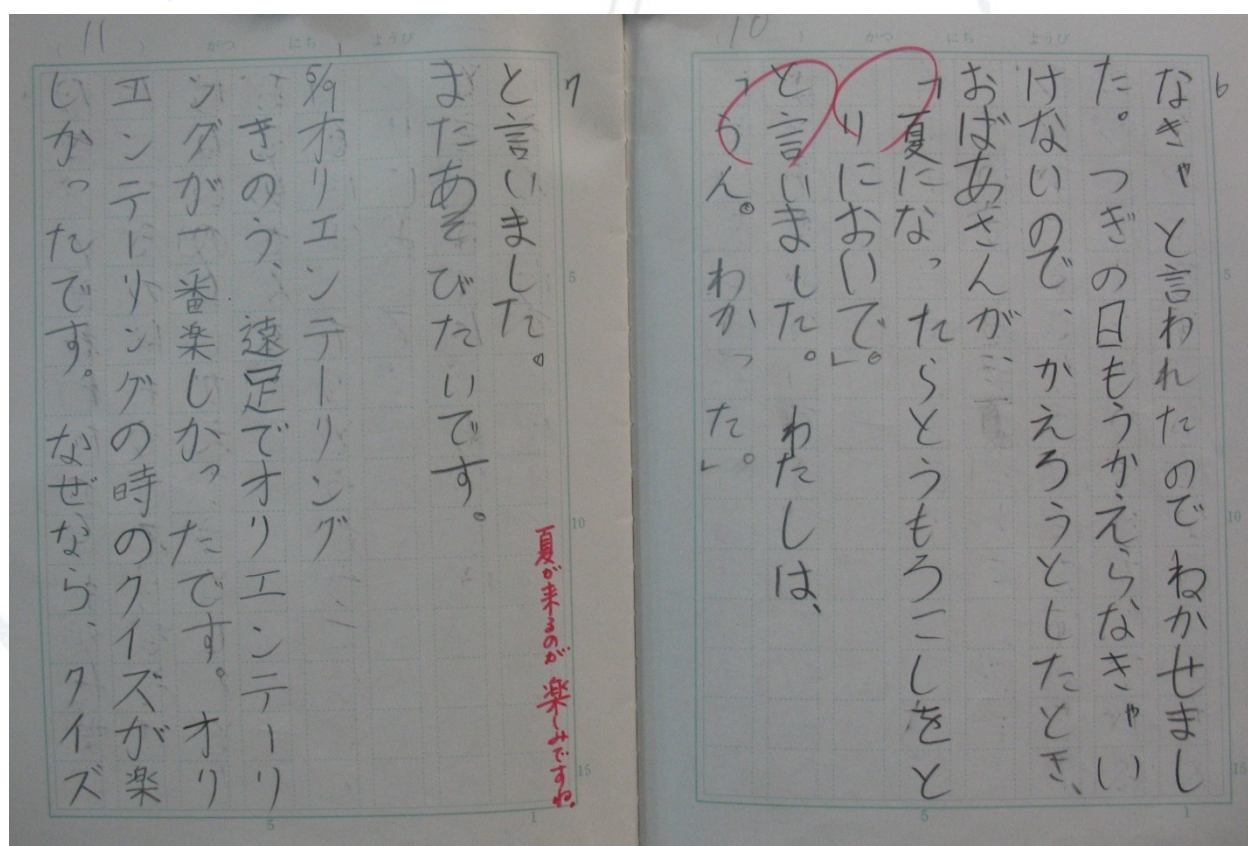 10
がつ にち ようび
6
なきゃと言われたのでねかせまし
た。つぎの日もうかえらなきゃい
けないので、かえろうとしたとき、
おばあさんが…
「夏になったらとうもろこしをと
りにおいで」。
と言いました。わたしは、
「うん。わかった。」
5
10
15
5
1
11
がつ にち ようび
7
と言いました。
またあそびたいです。
夏が来るのが楽しみですね。
5/9オリエンテーリング
きのう、遠足でオリエンテーリ
ングが一番楽しかったです。オリ
エンテーリングの時のクイズが楽
しかったです。なぜなら、クイズ
5
10
15
5
1